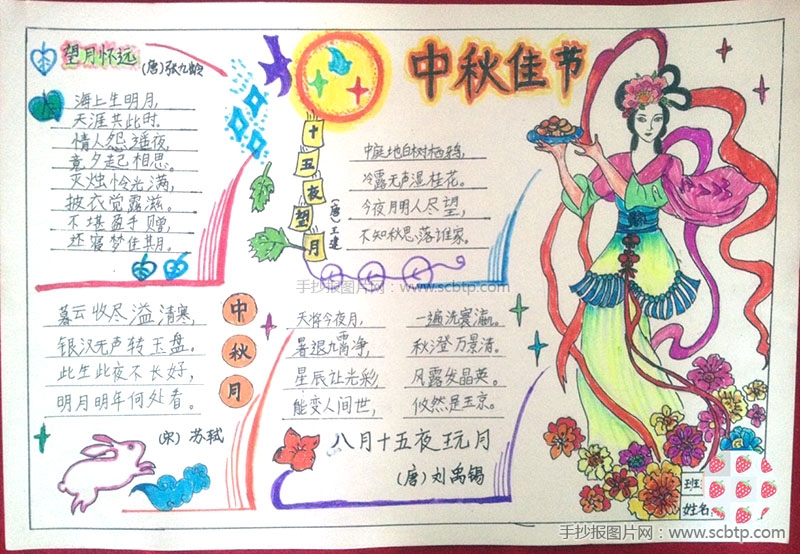 望月怀远
(唐)张九龄
海上生明月,
天涯共此时.
情人怨遥夜,
竟夕起相思。
灭烛怜光满,
披衣觉露滋。
不堪盈手赠,
还寝梦佳期。
中秋佳节
十五夜望月
(唐)王建
中庭地白树栖鸦,
冷露无声湿桂花。
今夜月明人尽望,
不知秋思落谁家。
手抄报图片网:www.scbtp.com
暮云收尽溢清寒,
银汉无声转玉盘。
此生此夜不长好,
明月明年何处看。
中秋月
(宋)苏轼
天将今夜月,
一遍洗寰瀛。
暑退九霄净,
秋澄万景清。
星辰让光彩,
风露发晶英。
能变人间世,
攸然是玉京。
八月十五夜玩月
(唐)刘禹锡
班
姓名:
手抄报图片网:www.scbtp.com